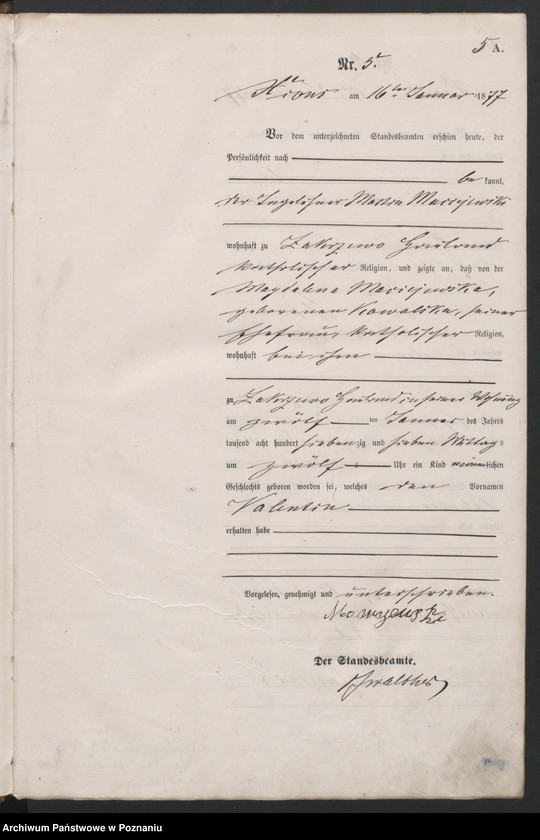 5 A.
Nr. 5.
Xions am 16ten Januar 1877
Vor dem unterzeichneten Standesbeamten erschien heute, der
Persönlichkeit nach
be kannt,
der Maciejewski
wohnhaft zu Zakrzewo Hauland
katholischer Religion, und zeigte an, daß von der
Magdalena Maciejewska,
geborenen Kowalska, seiner
Ehefrau, katholischer Religion,
wohnhaft bei ihm
zu Zakrzewo Hauland in seiner Wohnung
am zwölf ten Januar des Jahres
tausend acht hundert siebenzig und sieben Mittags
um zwölf Uhr ein Kind männlichen
Geschlechts geboren worden sei, welches den Vornamen
Valentin
erhalten habe
Vorgelesen, genehmigt und unterschrieben.
Der Standesbeamte.
Archiwum Państwowe w Poznaniu